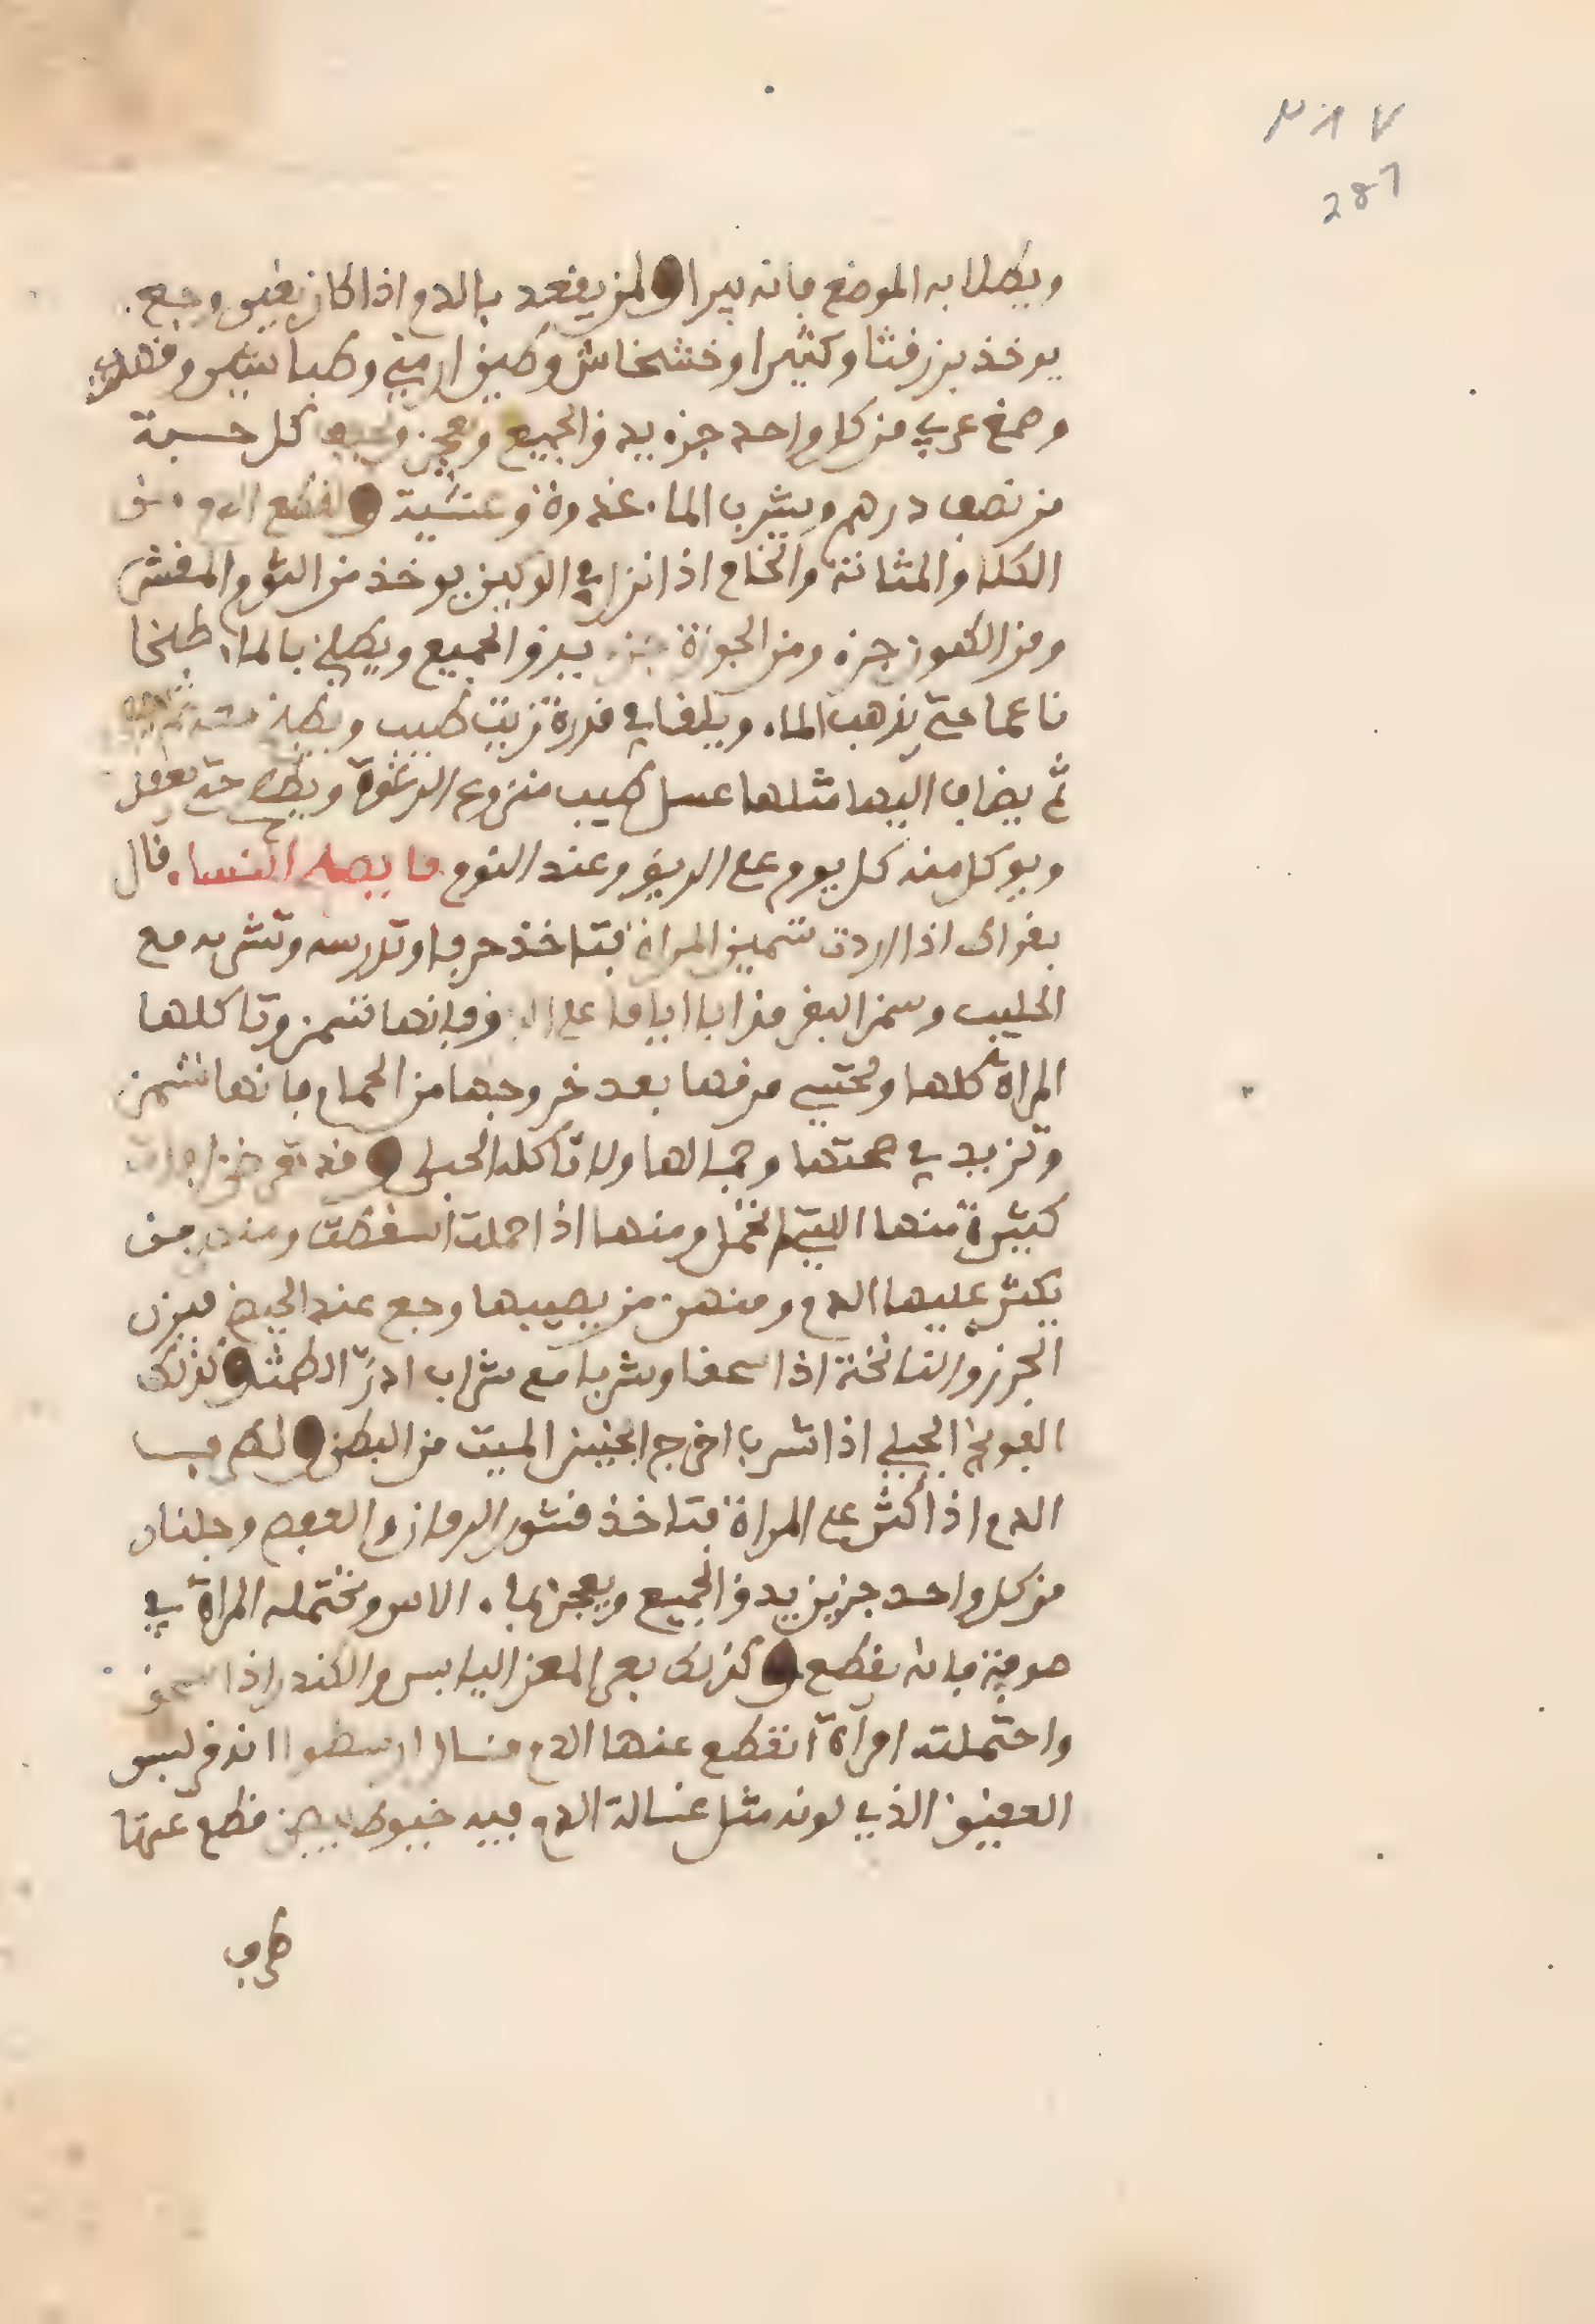 ٢٨٧
287
ويطلا به الموضع فانه يبرا ولمن يقعد بالدم اذا كان بغير وجع
يوخذ بزر قثا وكثيرا وخشخاش وطين ارميني وطباشير
وصمغ عربي من كل واحد جزء يدق الجميع ويعجن كل حسبة
من نصف درهم ويشرب الماء غدوة وعشية ولقطع الدم من
الكلا والمثانة والخام اذا نزل في الوكين يوخذ من الثوم المقشر
ومن الكمون جزء ومن الجوزة جزء يدق الجميع ويطبخ بالماء طبخا
ناعما حتى يذهب الماء ويلقا في قدرة زيت طيب ويطبخ
ثم يضاف اليها مثلها عسل طيب منزوع الرغوة ويطبخ حتى يعقد
ويوكل منه كل يوم على الريق وعند النوم ما يصلح النساء قال
بقراط اذا اردت تسمين المراة فتاخذ حرفا وتدرسه وتشربه مع
الحليب وسمن البقر مذابا اياما على فانها تسمن وتاكلها
المراة كلها وتحتسي مرقها بعد خروجها من الحمام فانها تسمن
وتزيد في صحتها وجمالها ولا تاكله الحبلى وقد
كثيرة منها التي لا تحمل ومنها اذا حملت اسقطت ومنهن من
يكثر عليها الدم ومنهن من يصيبها وجع عند الحيض فبزر
الجزر والنانخة اذا سحقا وشربا مع شراب ادرّ الطمث وكذلك
الفوذنج الجبلي اذا شربا اخرج الجنين الميت من البطن
الدم اذا كثر على المراة فتاخذ قشور الرمان والعفص وجلنار
من كل واحد جزين يدق الجميع ويعجن بماء الاس وتحتمله المراة في
صوفة فانه يقطع وكذلك بعر المعز اليابس والكندر اذا سحق
واحتملته امراة انقطع عنها الدم
العقيق الذي لونه مثل غسالة الدم فيه خيوط بيض قطع عنها
طرف